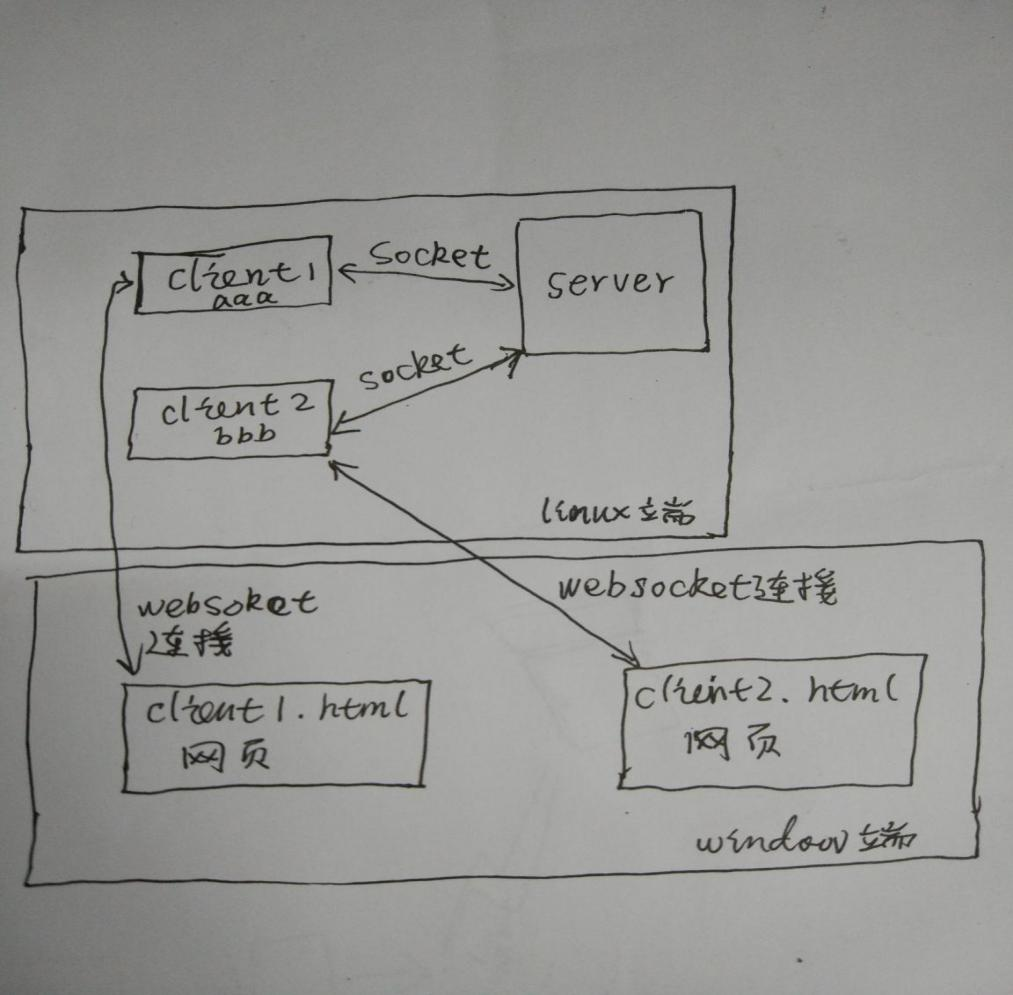 client1
aaa
Socket
server
client2
bbb
socket
linux端
websoket
连接
websocket连接
client1.html
网页
client2.html
网页
window端